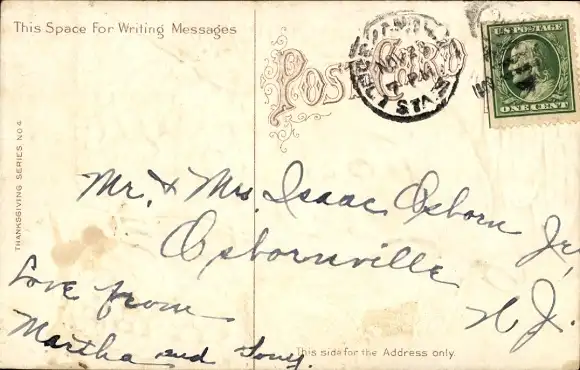 This Space For Writing Messages
POST CARD
NOV 23
7 PM
STA.
U.S. POSTAGE
ONE CENT
THANKSGIVING SERIES NO 4
Mr. & Mrs. Isaac Osborn Jr.
Osbornville
N J.
Love from
Martha and Tony.
This side for the Address only.